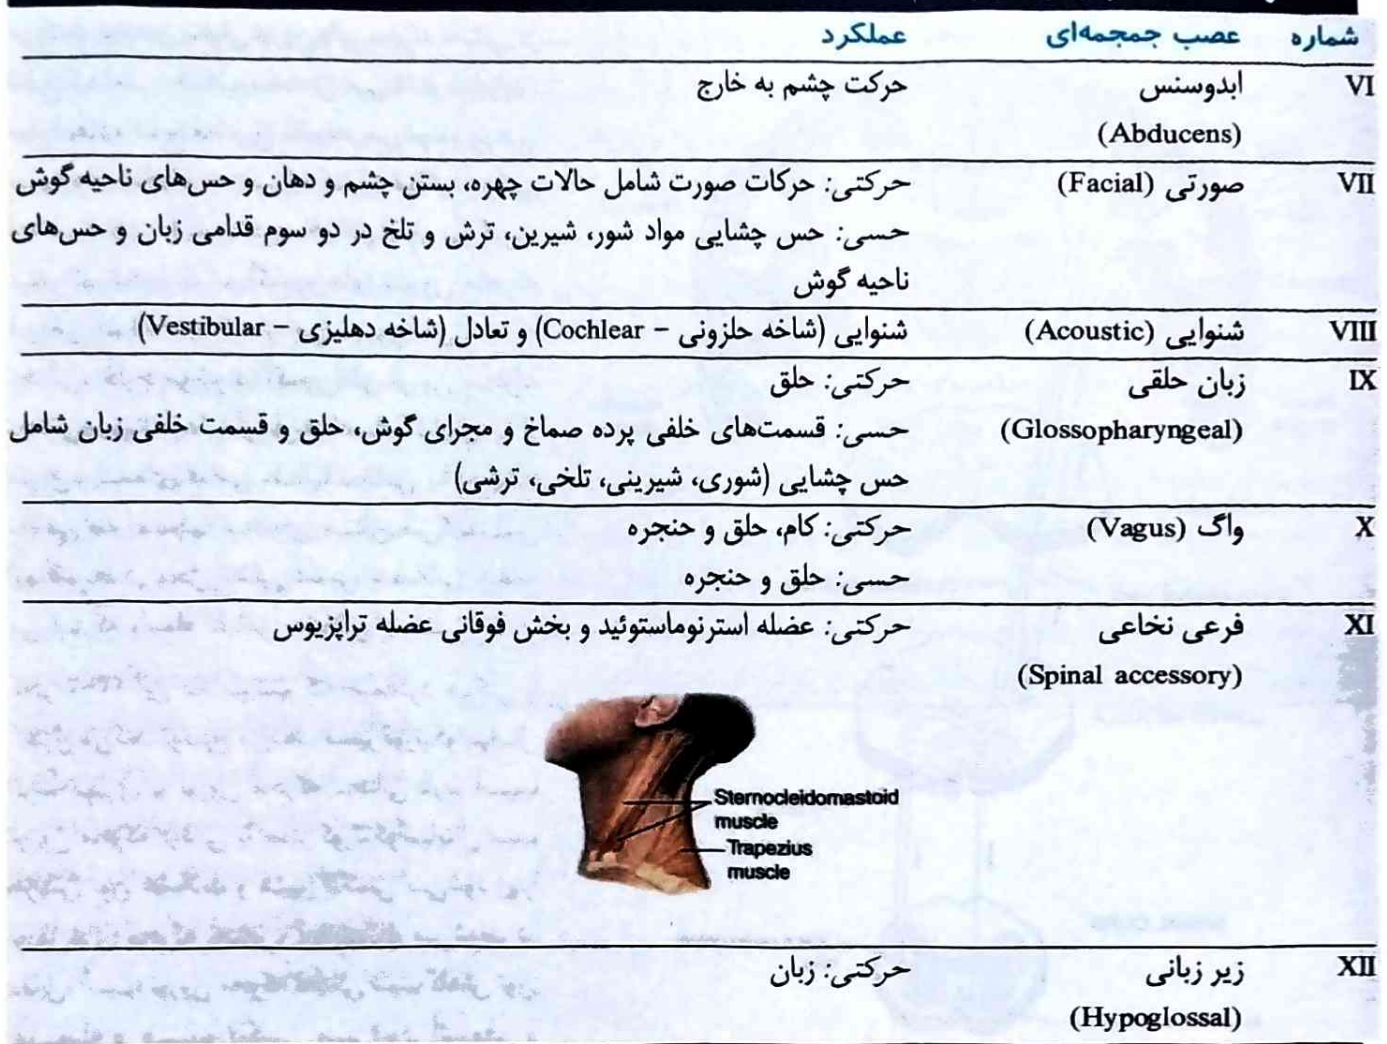 شماره عصب جمجمه‌ای عملکرد
VI ابدوسنس حرکت چشم به خارج
(Abducens)
VII صورتی (Facial) حرکتی: حرکات صورت شامل حالات چهره، بستن چشم و دهان و حس‌های ناحیه گوش
حسی: حس چشایی مواد شور، شیرین، ترش و تلخ در دو سوم قدامی زبان و حس‌های
ناحیه گوش
VIII شنوایی (Acoustic) شنوایی (شاخه حلزونی – Cochlear) و تعادل (شاخه دهلیزی – Vestibular)
IX زبان حلقی حرکتی: حلق
(Glossopharyngeal) حسی: قسمت‌های خلفی پرده صماخ و مجرای گوش، حلق و قسمت خلفی زبان شامل
حس چشایی (شوری، شیرینی، تلخی، ترشی)
X واگ (Vagus) حرکتی: کام، حلق و حنجره
حسی: حلق و حنجره
XI فرعی نخاعی حرکتی: عضله استرنوماستوئید و بخش فوقانی عضله تراپزیوس
(Spinal accessory)
Sternocleidomastoid
muscle
Trapezius
muscle
XII زیر زبانی حرکتی: زبان
(Hypoglossal)